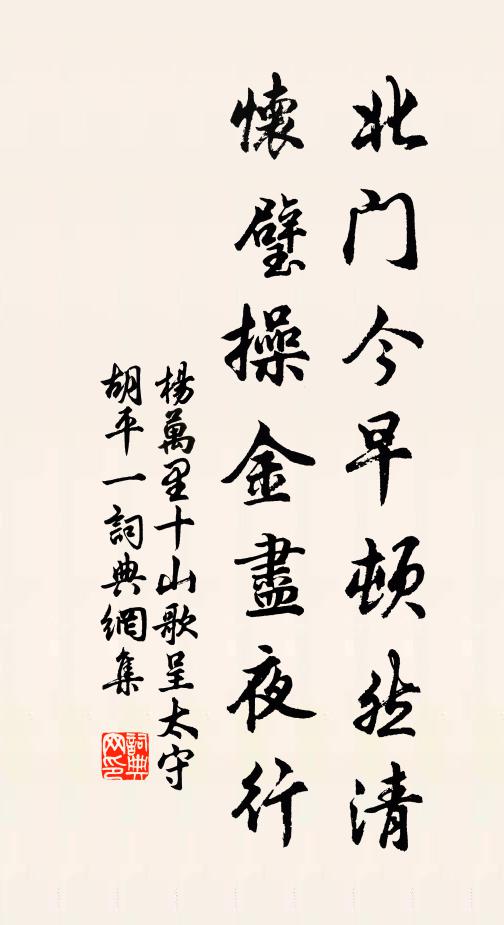 北门今早顿然清
懷璧操金盡夜行
楊萬里十山歌呈太守
胡平一詞典網集
詞典
网印